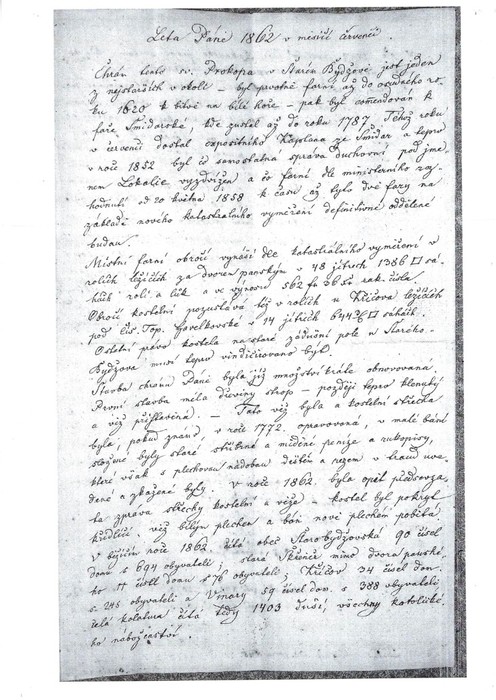 Léta Páně 1862 v měsíci červenci.
Chrám tento sv. Prokopa v Starém Bydžově jest jeden
z nejstarších v okolí – byl prvotně farní až do osudného ro-
ku 1620 k bitvě na bílé hoře – pak byl comendován k
faře Smidarské, kde zustal až do roku 1787. Téhož roku
v červenci dostal expositního kaplana ze Smidar a teprv
v roce 1852 byl co samostatná správa duchovní pod jme-
nem Lokalie vyzdvižen a co farní dle ministerního roz-
hodnutí od 20 května 1858 k času až bylo dvě fary na
základě nového katastrálního vyměření definitivně oddělené
budou.
Místní farní obročí vynáší dle katastrálního vyměření v
rolích ležících za dvorem panským v 48 jitrech 1386 □ sá-
hách rolí a luk a ve výnosu 562 fr 36 čísla
Obročí kostelní pozustává též v rolích u Křičova ležících
pod čís. Top. Havelkovské v 14 jitrích 644 □ sáhách.
Ostatní právo kostela na staré zádušní pole u Starého-
Bydžova musí teprv vindicirováno být.
Stavba chrámu Páně byla již množstvíkráte obnovovaná.
První stavba měla dřevěný strop – později teprv klenutý
a věž přistavěná. – Tato věž byla a kostelní střecha
byla, pokud znám, v roce 1772. opravovaná, v malé báni
složené byly staré stříbrné a měděné peníze a rukopisy,
které však s plechovou nádobou deštěm a rezem v zmar uve-
dené a zkažené byly. V roce 1862. byla opět předsevza-
ta zpráva střechy kostelní a věže – kostel byl pokryt
křidlicí, věž bílým plechem a báň nově plechem pobitá
V běžícím roce 1862. čítá obec Starobydžovská 90 čísel
domu s 694 obyvateli; stará Skřeněř mimo dvora panské-
ho 11 čísel domu s 76 obyvateli; Křičov 34 čísel dom.
s 245 obyvateli a Vinary 59 čísel dom. s 388 obyvateli
celá kolatura čítá tedy 1403 duší, všechny katolické-
ho náboženství.